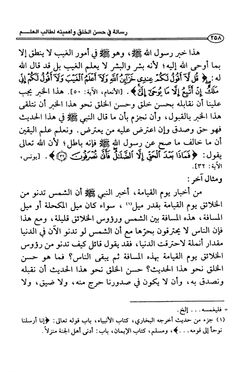 ٢٥٨ رسالة في حسن الخلق وأهميته لطالب العلم
هذا خبر رسول الله ﷺ، وهو ﷺ في أمور الغيب لا ينطق إلا
له: ﴿قُل لَّا أَقُولُ لَكُمْ عِندِي خَزَائِنُ اللَّهِ وَلَا أَعْلَمُ الْغَيْبَ وَلَا أَقُولُ لَكُمْ إِنِّي
مَلَكٌ إِنْ أَتَّبِعُ إِلَّا مَا يُوحَىٰ إِلَيَّ﴾ [الأنعام، الآية: ٥٠]. هذا الخبر يجب
علينا أن نقابله بحسن خلق وحسن الخلق نحو هذا الخبر أن نتلقى
هذا الخبر بالقبول، وأن نجزم بأن ما قال النبي ﷺ في هذا الحديث
فهو حق وصدق وإن اعترض عليه من يعترض. ونعلم علم اليقين
أن ما خالف ما صح عن رسول الله ﷺ فإنه باطل؛ لأن الله تعالى
يقول: ﴿فَمَاذَا بَعْدَ الْحَقِّ إِلَّا الضَّلَالُ فَأَنَّىٰ تُصْرَفُونَ﴾. [يونس،
الآية: ٣٢].
ومثال آخر:
من أخبار يوم القيامة، أخبر النبي ﷺ أن الشمس تدنو من
الخلائق يوم القيامة بقدر ميل(١)، سواء كان ميل المكحلة أو ميل
المسافة، هذه المسافة بين الشمس ورؤوس الخلائق قليلة، ومع هذا
فإن الناس لا يحترقون بحرها مع أن الشمس لو تدنو الآن في الدنيا
مقدار أنملة لاحترقت الدنيا، فقد يقول قائل كيف تدنو من رؤوس
الخلائق يوم القيامة بهذه المسافة ثم يبقى الناس؟ فما هو حسن
الخلق نحو هذا الحديث؟ حسن الخلق نحو هذا الحديث أن نقبله
ونصدق به، وأن لا يكون في صدورنا حرج منه، ولا ضيق، ولا
= فليغمسه... إلخ.
(١) جزء من حديث أخرجه البخاري، كتاب الأنبياء، باب قوله تعالى: ﴿إنا أرسلنا
نوحاً إلى قومه...﴾، ومسلم، كتاب الإيمان، باب: أدنى أهل الجنة منزلاً.